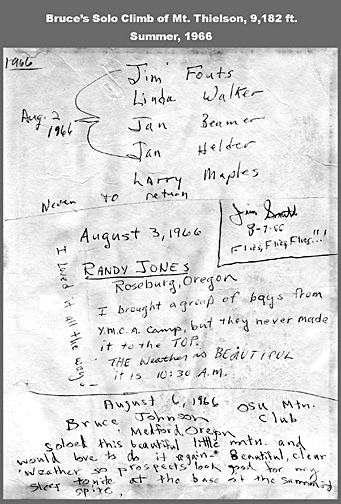 Bruce's Solo Climb of Mt. Thielson, 9,182 ft.
Summer, 1966
1966
Aug. 2
1966
Jim Fouts
Linda Walker
Jan Beamer
Jan Helder
Larry Maples
Never to return
Jim Smith
8-7-66
Flies, Flies, Flies...!
August 3, 1966
RANDY JONES
Roseburg, Oregon
I brought a group of boys from
Y.M.C.A. Camp, but they never made
it to the TOP.
THE Weather is BEAUTIFUL
it is 10:30 A.M.
I loved it all the way!
August 6, 1966
OSU Mtn.
Club
Bruce Johnson
Medford Oregon
Soloed this beautiful little mtn. and
would love to do it again. Beautiful, clear
weather so prospects look good for my
sleep tonite at the base of the summit
spire.